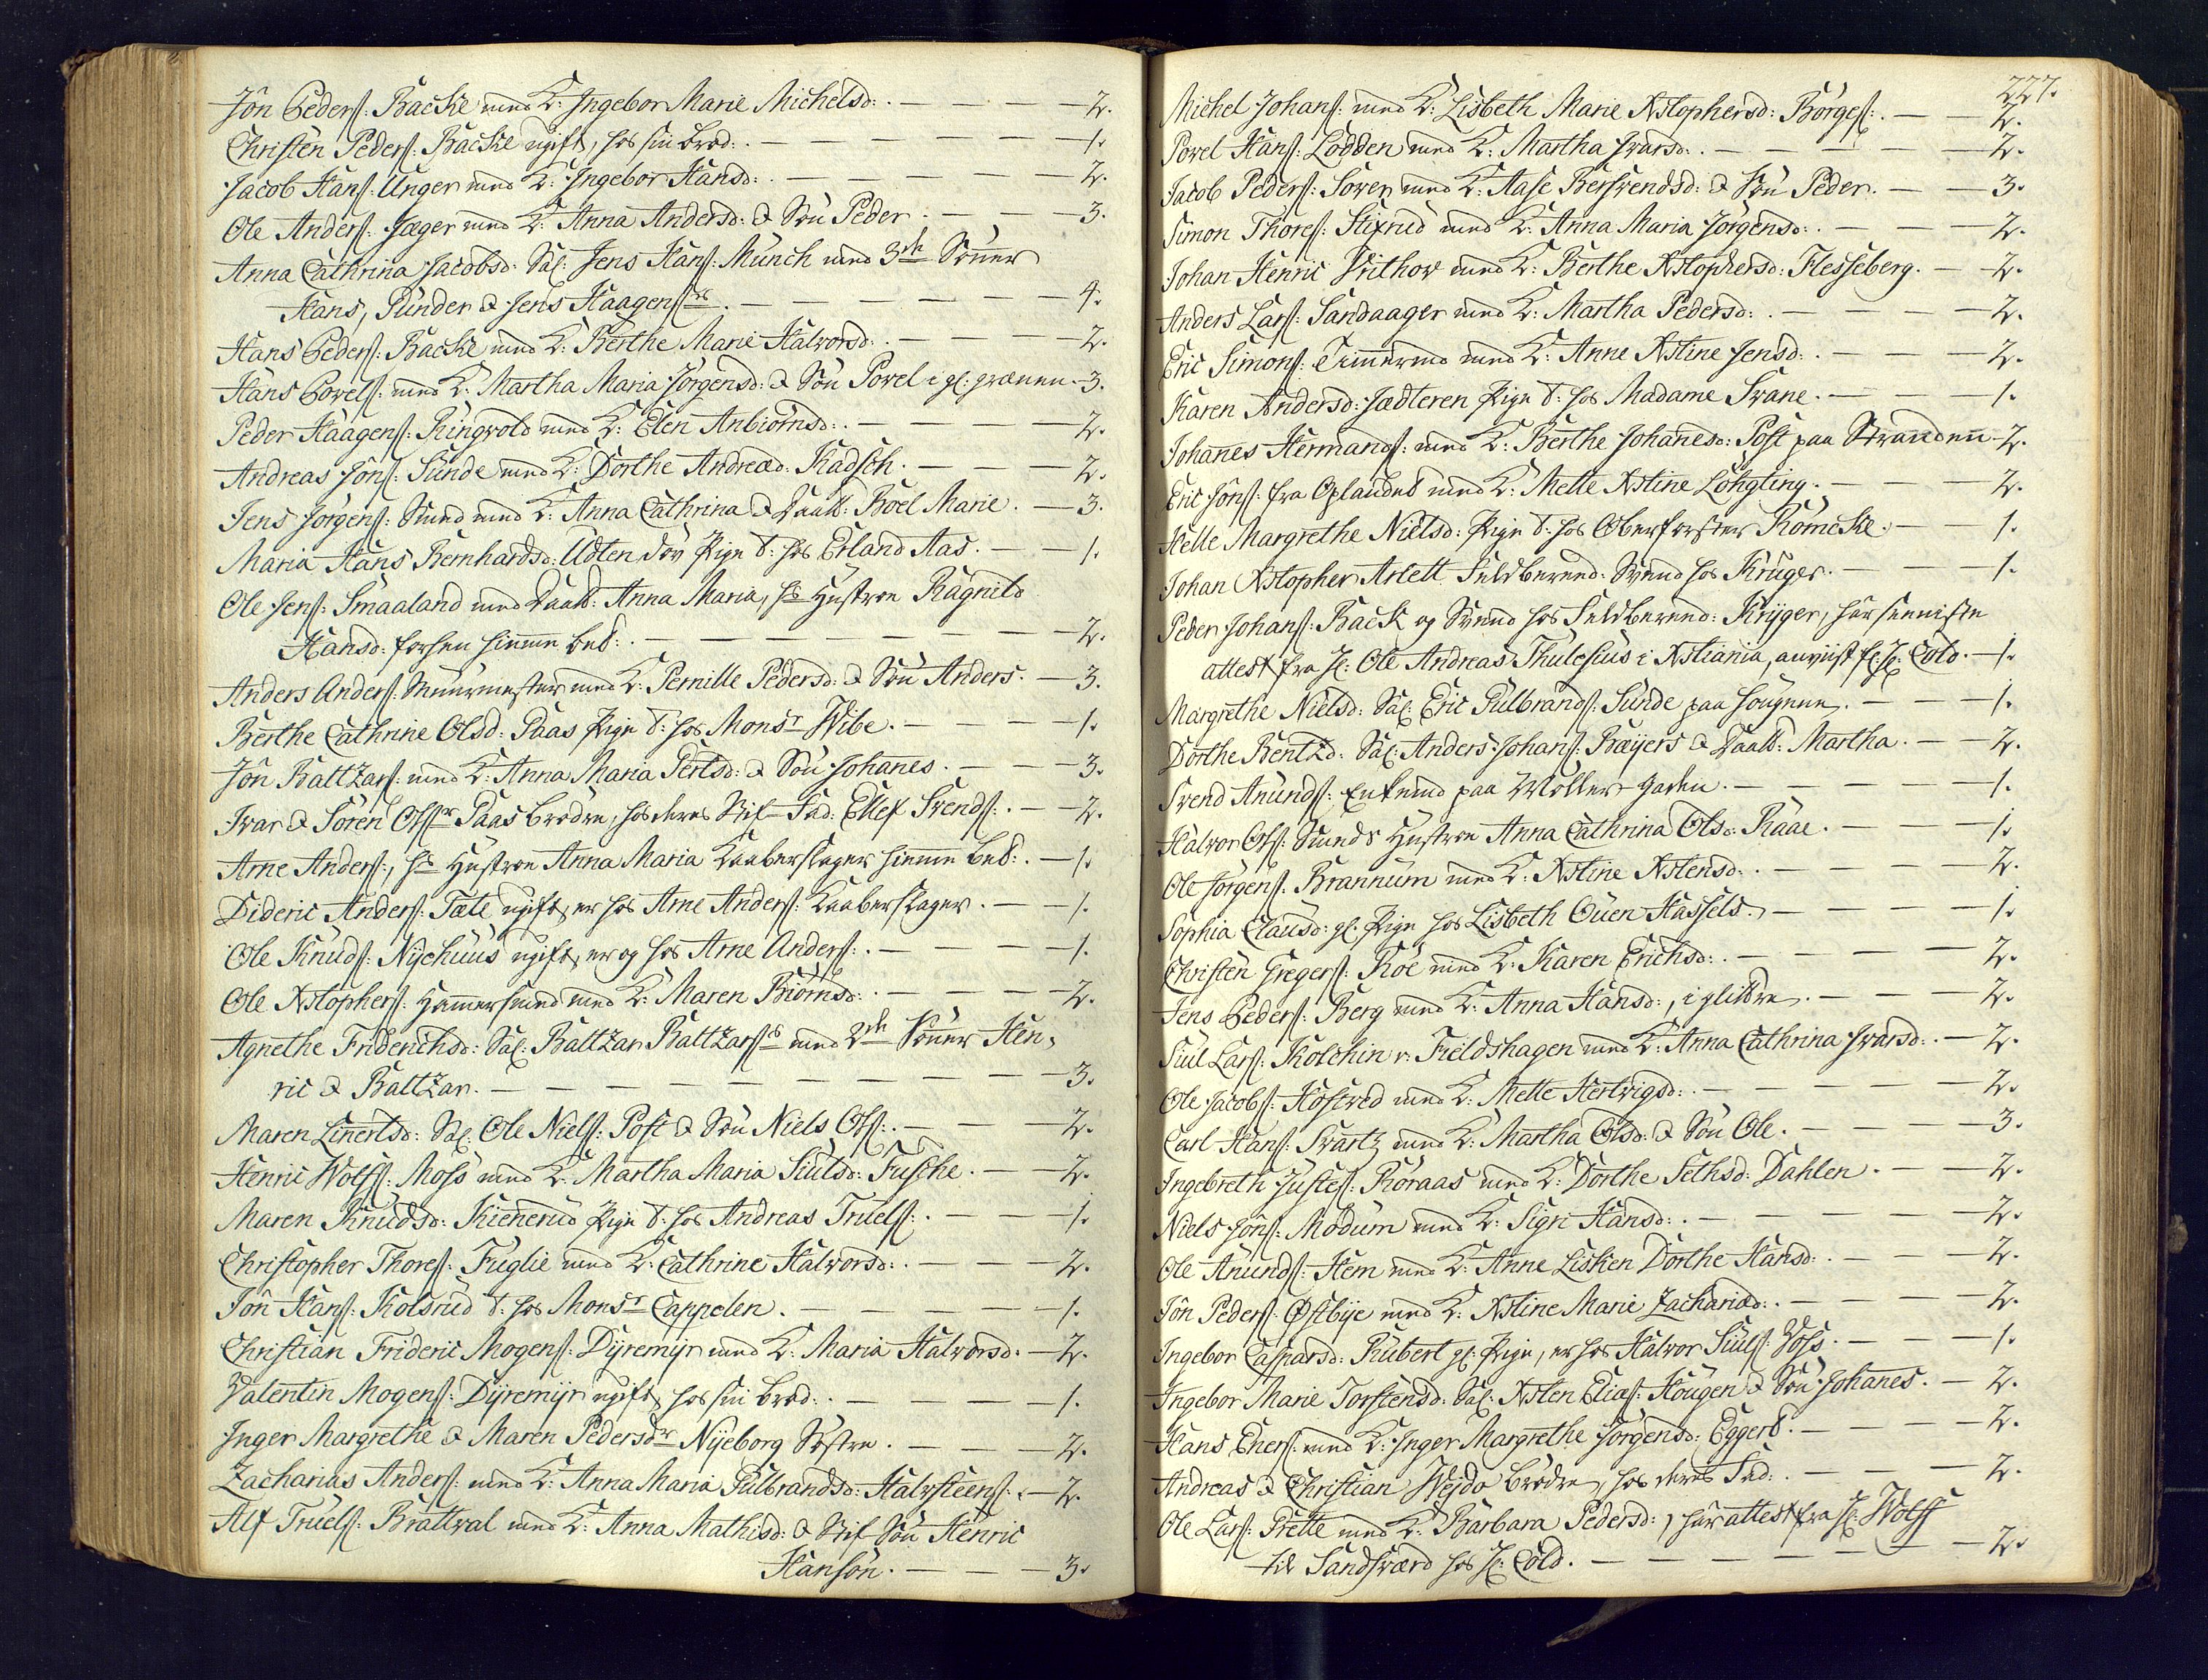 Jôn Peders: Backe med K: Ingebor Marie Michelsd: . — — — 2.
Christen Peders: Backe ugift, hos sin brod: . — — — — — 1.
Jacob Hans: Unger med K: Ingebor Hansd: . — — — — — 2.
Ole Anders: Jæger med K: Anna Andersd: & Søn Peder . — — — 3.
Anna Cathrina Jacobsd: Sal: Jens Hans: Münch med 3de Sønner
Hans, Gunder & Jens Haagens . — — — — — 4.
Hans Peders: Backe med K: Berthe Marie Halvorsd: . — — — — 2.
Hans Povels: med K: Martha Maria Jörgensd: & Søn Povel i gl: grænen . 3.
Peder Haagens: Ringvold med K: Elen Anbiörnsd: . — — — 2.
Andreas Jôns: Sunde med K: Dorthe Andread: Kadsch . — — — 2.
Jens Jörgens: Smed med K: Anna Cathrina & Daatt: Boel Marie . — 3.
Maria Hans Bernhardsd: Udten döv Pige t: hos Erland Aas . — — 1.
Ole Jens: Smaaland med Daatt: Anna Maria, hs Hustroe Ragnild
Hansd: forhen hiemme ber: . — — — — — — 2.
Anders Anders: Muurmester med K: Pernille Pedersd: & Søn Anders . — 3.
Berthe Cathrine Olsd: Paas Pige t: hos Monsr Wibe . — — — 1.
Jôn Baltzars: med K: Anna Maria Pertsd: & Søn Johanes . — — 3.
Ivar & Sören Olss Paas brödre, hos deres Stif-Fad: Ellef Svends: . — 2.
Arne Anders:, hs Hustroe Anna Maria Kaaberslager hiemme ber: . — 1.
Dideric Anders: Tæle ugift, er hos Arne Anders: Kaaberslager . — — 1.
Ole Knuds: Nyehuus ugift, er og hos Arne Anders: . — — — 1.
Ole Xstophers: Hammersmed med K: Maren Biörnsd: . — — — 2.
Agnethe Friderichsd: Sal: Baltzar Baltzars med 2de Sønner Hen-
ric & Baltzar . — — — — — — — 3.
Maren Linertsd: Sal: Ole Niels: Post & Søn Niels Ols: . — — — 2.
Henric Wolffs: Moss med K: Martha Maria Siulsd: Fusche . — — 2.
Maren Knudsd: Kiennerud Pige t: hos Andreas Truels: . — — — 1.
Christopher Thores: Fuglie med K: Cathrine Halvorsd: . — — — 2.
Jôn Hans: Kolsrud t: hos Monsr Cappelen . — — — — 1.
Christian Frideric Mogens: Dyremyr med K: Maria Halvorsd: — 2.
Valentin Mogens: Dyremyr ugift, hos sin brod: . — — — — 1.
Inger Margrethe & Maren Pedersdr Nyeborg Söstre . — — — 2.
Zacharias Anders: med K: Anna Maria Gulbrandsd: Halvsteens: . — 2.
Alf Truels: Brattval med K: Anna Mathisd: & Stif Søn Henric
Hansön . — — — 3.
227.
Michel Johans: med K: Lisbeth Marie Xstophersd: Börges: . — 2.
Povel Hans: Lodden med K: Martha Ivarsd: . — — — — 2.
Jacob Peders: Sover med K: Aase Bersvendsd: & Søn Peder . — — 3.
Simon Thores: Stixrud med K: Anna Maria Jörgensd: . — — — 2.
Johan Henric Prithow med K: Berthe Xstophersd: Flesseberg . — 2.
Anders Lars: Sandaager med K: Martha Pedersd: . — — — — 2.
Eric Simons: Timmermd med K: Anne Xstine Jensd: . — — — 2.
Karen Andersd: Jædteren Pige t: hos Madame Svane . — — — 1.
Johanes Hermands: med K: Berthe Johanesd: Post paa Stranden — 2.
Eric Jôns: fra Oplandet med K: Mette Xstine Löhgting . — — — 2.
Helle Margrethe Nielsd: Pige t: hos Oberforster Römcke . — — 1.
Johan Xstopher Artelt Feldbereed: Svend hos Krüger . — — — 1.
Peder Johans: Back og Svend hos Feldbereed: Kryger, har seeniste
attest fra Hr: Ole Andreas Thulesius i Xstiania, anviist fl: Hr: Cold . — 1.
Margrethe Nielsd: Sal: Eric Gulbrands: Sunde paa Hougene . — — 1.
Dorthe Bentzd: Sal: Anders Johans: Bæyers & Daatt: Martha . — — 2.
Svend Anunds: Enkemd paa Möller-Garden . — — — 1.
Halvor Ols: Smeds Hustroe Anna Cathrina Olsd: Raae . — — — 1.
Ole Jörgens: Brannum med K: Xstine Xstensd: . — — — 2.
Sophia Clausd: gl: Pige hos Lisbeth Ouen Hassels . — — — 1.
Christen Gregers: Roe med K: Karen Erichsd: . — — — 2.
Jens Peders: Berg med K: Anna Hansd:, i glittre . — — — 2.
Siul Lars: Kolchin v: Fieldshagen med K: Anna Cathrina Ivarsd: . — 2.
Ole Jacobs: Hostved med K: Mette Hertvigsd: . — — — — 2.
Carl Hans: Svartz med K: Martha Olsd: & Søn Ole . — — — 3.
Ingebreth Justes: Röraas med K: Dorthe Sethsd: Dahlen . — — 2.
Niels Jôns: Modum med K: Sigri Hansd: . — — — — 2.
Ole Anunds: Hem med K: Anne Lisken Dorthe Hansd: . — — 2.
Jôn Peders: Østbye med K: Xstine Marie Zachariæd: . — — — 2.
Ingebor Casparsd: Rubert gl: Pige, er hos Halvor Siuls: Voss . — — 1.
Ingebor Marie Torstensd: Sal: Xsten Elias: Hougen & Søn Johanes . — 2.
Hans Eners: med K: Inger Margrethe Jörgensd: Eggers . — — — 2.
Andreas & Christian Wejdo brödre, hos deres Fad: . — — — 2.
Ole Lars: Prette med K: Barbara Pedersd:, har attest fra Hr: Wolff
til Sandsværd hos Hr: Cold . — — — — — 2.